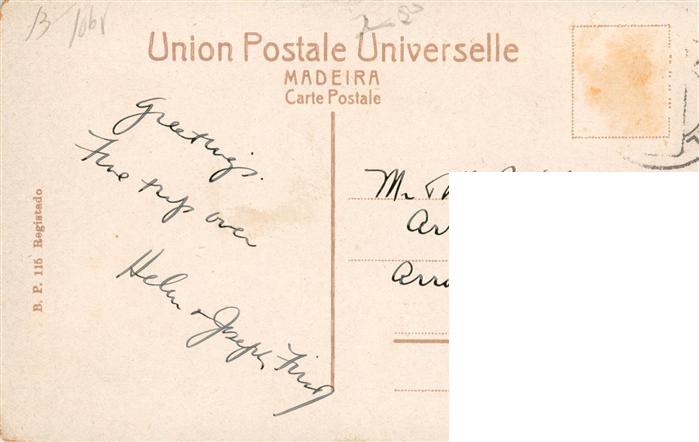 Union Postale Universelle
MADEIRA
Carte Postale
B. P. 115 Registado
Greetings.
Fine trip over
Helen + Joseph
Mr.